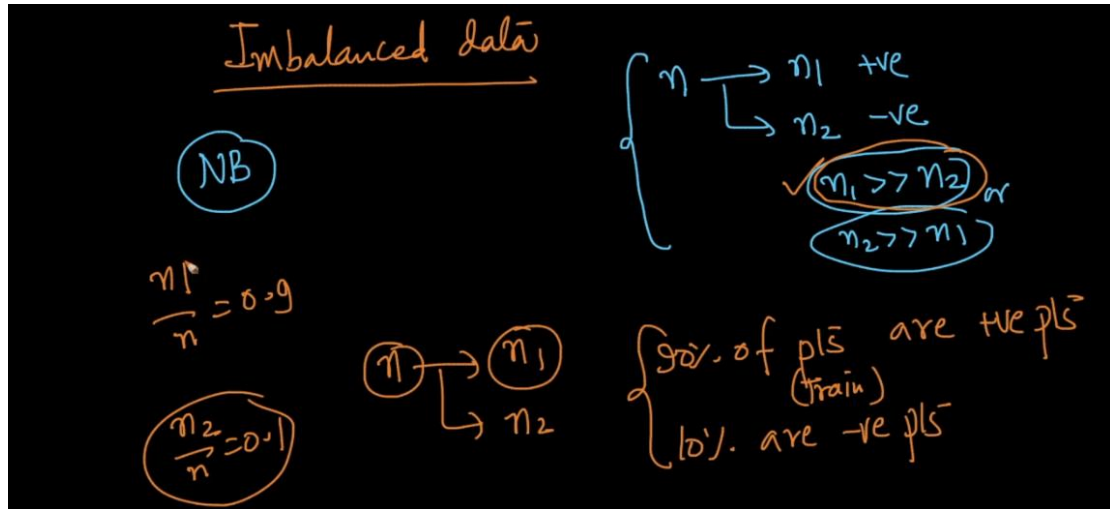 Imbalanced data
n → n1 +ve
→ n2 -ve
✓ n1 >> n2 or
n2 >> n1
NB
n1/n = 0.9
n2/n = 0.1
n → n1
→ n2
90%. of pts are +ve pts
(train)
10%. are -ve pts